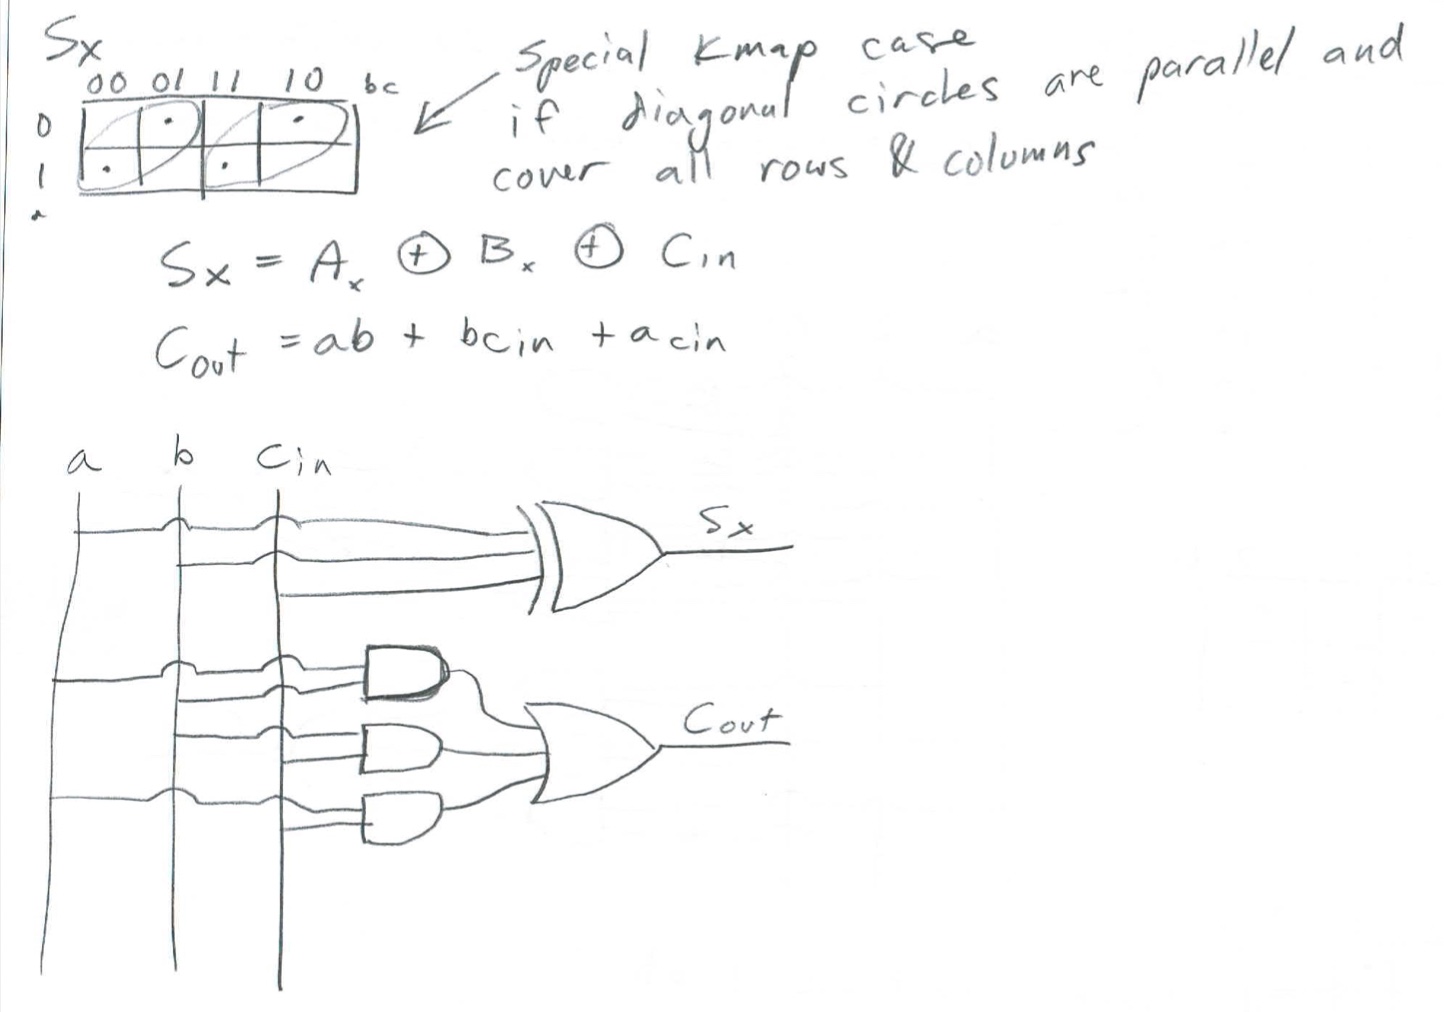 Sx
00 01 11 10 bc
0
1
a
Special Kmap case
if diagonal circles are parallel and
cover all rows & columns
Sx = Ax ⊕ Bx ⊕ Cin
Cout = ab + bcin + acin
a b Cin
Sx
Cout